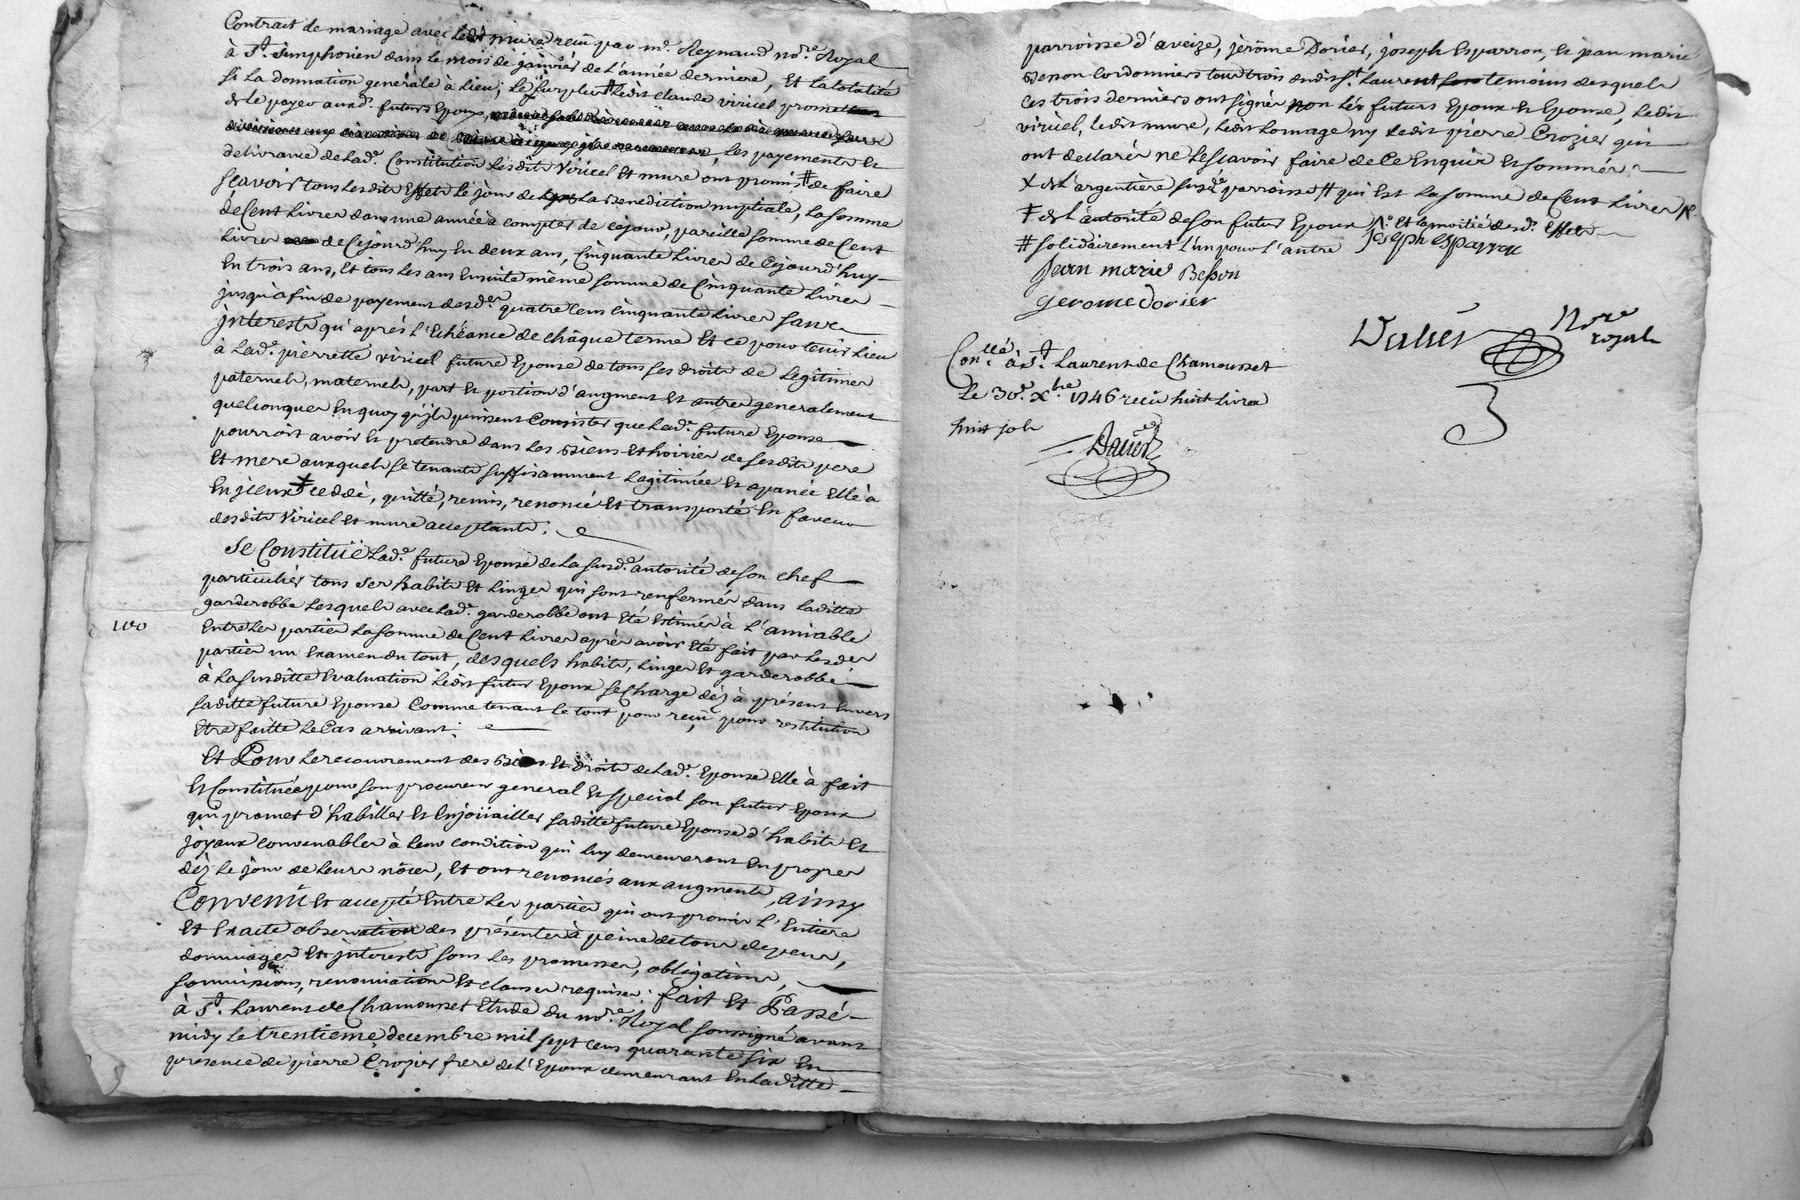 Contrait de mariage avec ledit mure reçu par me. Reynaud nore. Royal
à St. Simphorien dans le mois de janvier de l'année derniere, Et la totalité
si la donnation generale à lieu; le surplus # ledit claude viricel promet
de le payer auxd. futurs Epoux,
les payements et
delivrance de lad.e Constitution lesdits Viricel et mure ont promis # de faire
sçavoir tous lesdits Effets le jour de la Benediction nuptiale, la somme
de Cent livres dans une année à compter de cejour, pareille somme de Cent
livres de Cejourd'huy En deux ans, Cinquante livres de Cejourd'huy
En trois ans, Et tous les ans Ensuite même somme de Cinquante livres
jusqu'à fin de payement desd.es quatre Cens Cinquante livres sans
jnterests qu'après l'Echéance de châque terme Et ce pour tenir lieu
à lad.e pierrette viricel future Epouse de tous ses droits de Legitimes
paternels, maternels, part Et portion d'augment Et autres generalement
quelconques En quoy qu'jls puissent Consister que lad.e future Epouse
pourroit avoir Et pretendre dans les Biens Et hoiries de sesdits pere
Et mere auxquels se tenante suffisamment Legitimée Et apanée Elle à
En jceux ceddé, quitté, remis, renoncé Et transporté En faveur
desdits Viricel Et mure acceptants.
Se Constitüe lad.e future Epouse de la susd.e autorité de son chef
particulier tous ses habits Et Linges qui sont renfermés dans laditte
garderobbe Lesquels avec lad.e garderobbe ont Eté Estimés à l'amiable
100
Entre les parties la somme de Cent livres après avoir Eté fait par lesd.es
parties un Examen du tout, desquels habits, linges Et garderobbe
à la susditte Evaluation ledit futur Epoux se charge déz à présent Envers
laditte future Epouse Comme tenant le tout pour reçu, pour restitution
Etre faitte le Cas arrivant.
Et Pour le recouvrement des Biens Et droits de lad.e Epouse Elle à fait
Et Constitué pour son procureur general Et special son futur Epoux
qui promet d'habiller Et Enjoüailler laditte future Epouse d'habits Et
joyaux convenables à leur condition qui luy demeureront En propres
déz le jour de leurs nôces, Et ont renoncés aux augments, ainsy
Convenü Et accepté Entre les parties qui ont promis l'Entiere
Et Exacte observation des présentes à peine de tous depens,
dommages Et jnterests sous les promesses, obligations,
soumissions, renonciations Et clauses requises. fait Et Passé
à St. Laurent de Chamousset Etude du nore. Royal soussigné avant
midy le trentieme decembre mil sept cens quarante six En
présence de pierre Crozier frere de l'Epoux demeurant En laditte
parroisse d'aveize, jerôme Dorier, joseph Esparron, Et jean marie
Besson Cordonniers tous trois dudit St. Laurent temoins desquels
Ces trois derniers ont signés non les futurs Epoux Et Epouse, ledit
viricel, ledit mure, ledit homage ny ledit pierre Crozier qui
ont declarés ne le sçavoir faire de Ce Enquis Et sommés.
X de l'argentière susd.e parroisse # qui Est la somme de Cent livres
‡ de l'autorité de son futur Epoux Et la moitié desd. Effets
# solidairement l'un pour l'autre joseph esparron
Jean marie Besson
Gerome dorier
Dalier Nore
royal
Con.llé à St. Laurent de Chamousset
Le 30e. Xbre 1746 reçu huit livres
huit sols
Dalier